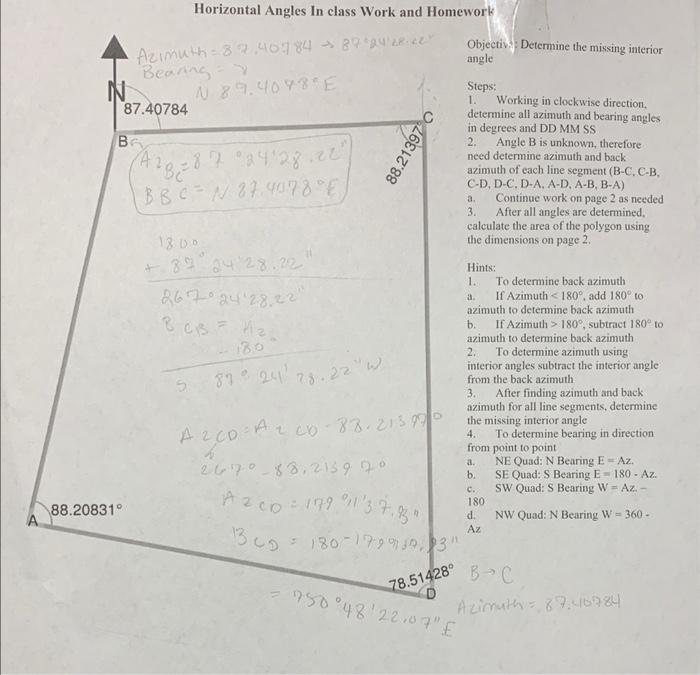 Horizontal Angles In class Work and Homework
Azimuth = 87.40784 → 87°24'28.22"
Bearing =
N 89.4078°E
N
87.40784
B
C
88.21397°
AzBC = 87°24'28.22"
BBC = N 87.4078°E
180°
+ 87°24'28.22"
267°24'28.22"
BCB = Az
- 180°
S 87° 24' 28.22" W
AzCD = AzCD - 88.21397°
267° - 88.21397°
AzCD = 179°11'37.93"
BCD = 180 - 179°11'37.93"
= 750°48'22.07"E
88.20831°
A
78.51428°
D
Objective: Determine the missing interior
angle
Steps:
1. Working in clockwise direction,
determine all azimuth and bearing angles
in degrees and DD MM SS
2. Angle B is unknown, therefore
need determine azimuth and back
azimuth of each line segment (B-C, C-B,
C-D, D-C, D-A, A-D, A-B, B-A)
a. Continue work on page 2 as needed
3. After all angles are determined,
calculate the area of the polygon using
the dimensions on page 2.
Hints:
1. To determine back azimuth
a. If Azimuth < 180°, add 180° to
azimuth to determine back azimuth
b. If Azimuth > 180°, subtract 180° to
azimuth to determine back azimuth
2. To determine azimuth using
interior angles subtract the interior angle
from the back azimuth
3. After finding azimuth and back
azimuth for all line segments, determine
the missing interior angle
4. To determine bearing in direction
from point to point
a. NE Quad: N Bearing E = Az.
b. SE Quad: S Bearing E = 180 - Az.
c. SW Quad: S Bearing W = Az. –
180
d. NW Quad: N Bearing W = 360 -
Az
B → C
Azimuth = 87.40784